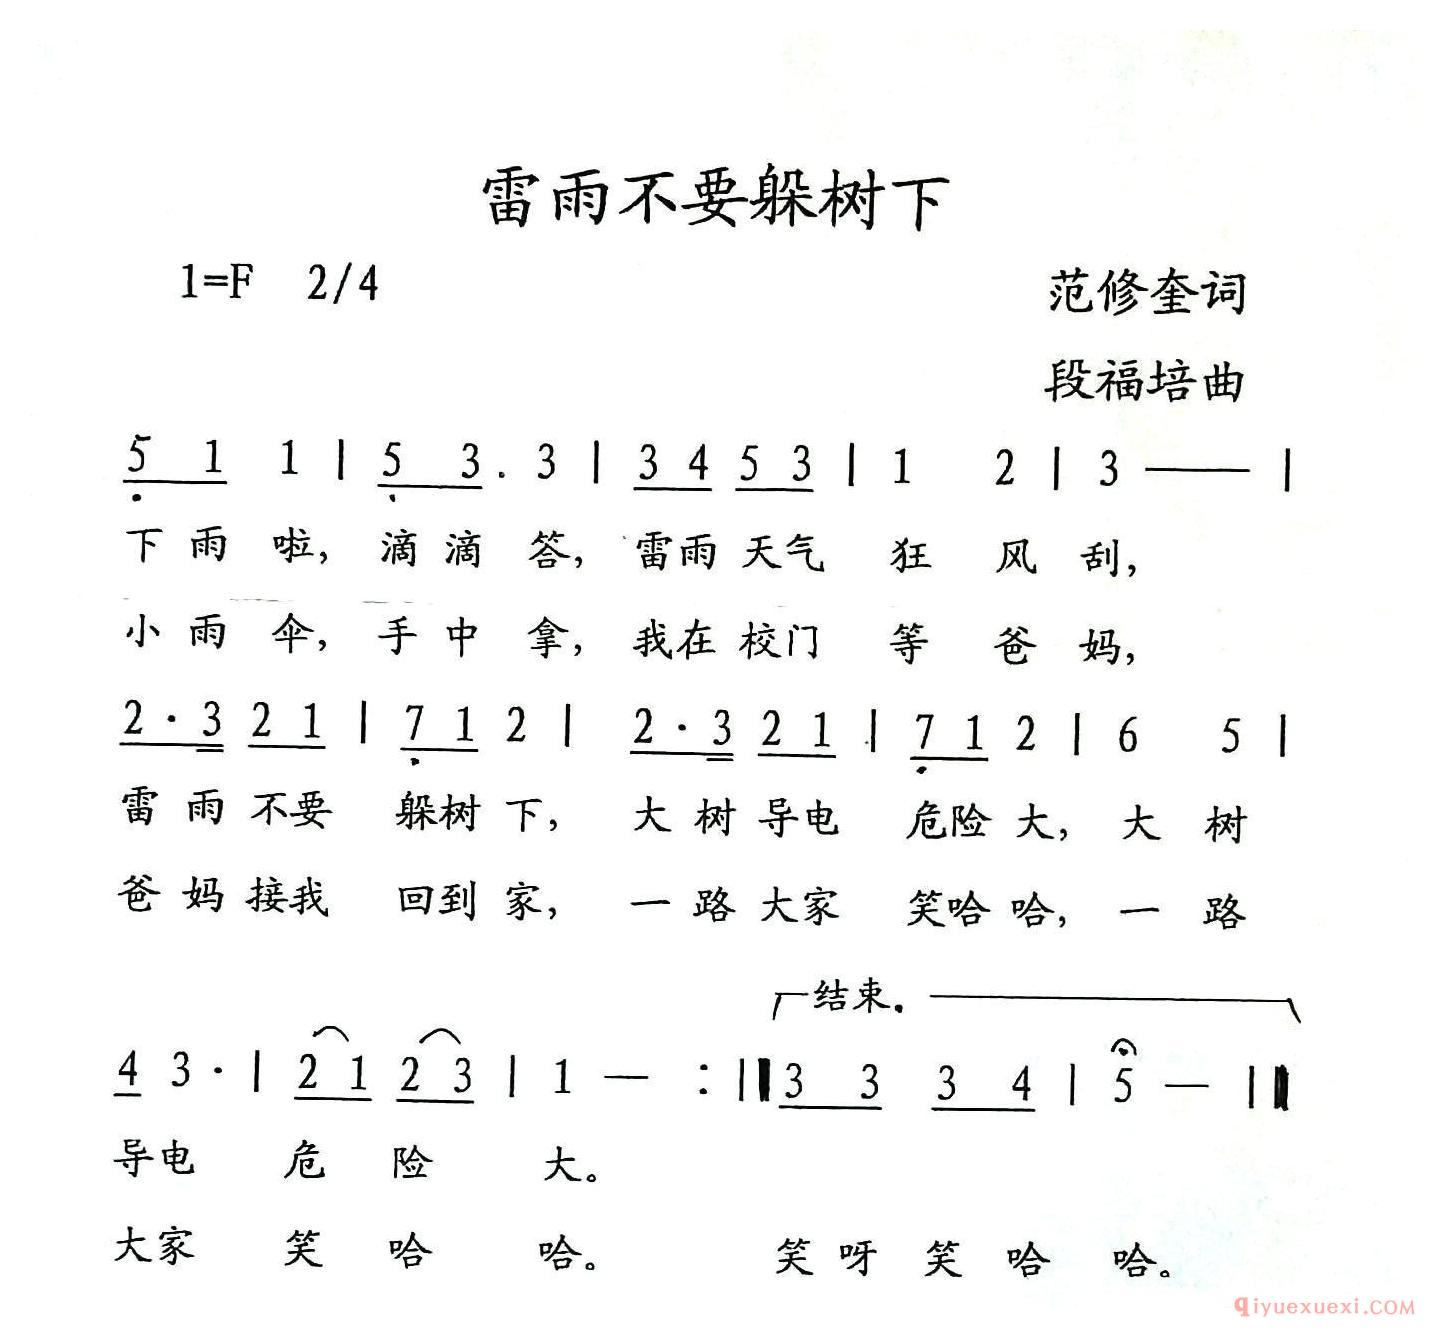 雷雨不要躲树下
1=F 2/4 范修奎词
段福培曲
5 1 1 | 5 3 . 3 | 3 4 5 3 | 1 2 | 3 —— |
下雨啦，滴滴答，雷雨天气狂风刮，
小雨伞，手中拿，我在校门等爸妈，
2 · 3 2 1 | 7 1 2 | 2 · 3 2 1 | 7 1 2 | 6 5 |
雷雨不要躲树下，大树导电危险大，大树
爸妈接我回到家，一路大家笑哈哈，一路
结束.
4 3 · | 2 1 2 3 | 1 — :|| 3 3 3 4 | 5 — ||
导电危险大。
大家笑哈哈。笑呀笑哈哈。
qiyuexuexi.COM